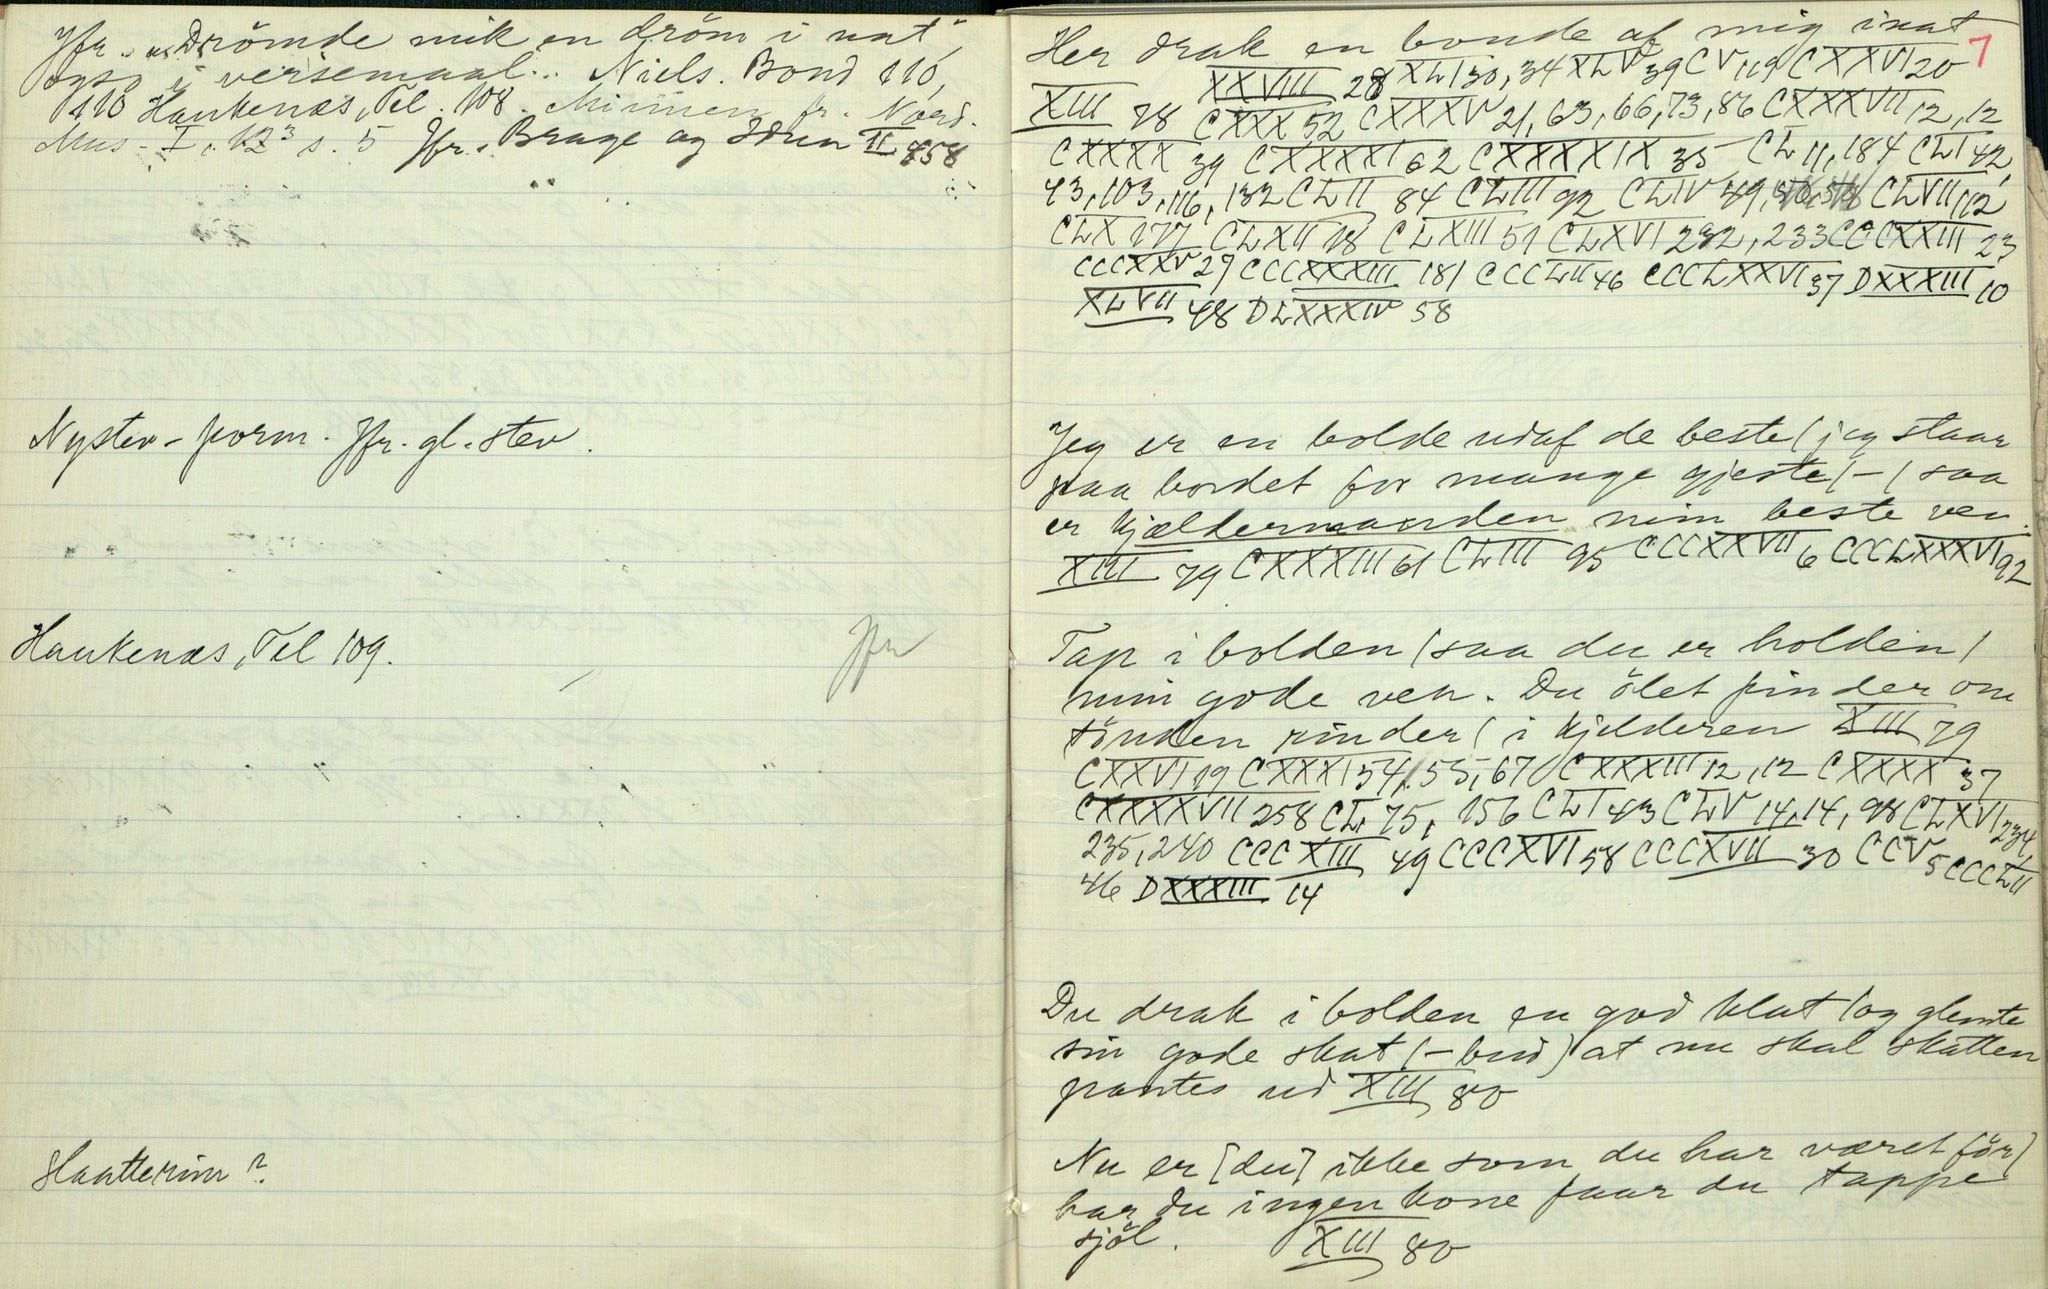 Jfr. „Drömde mik en dröm i nat“,
ogso i versemaal... Niels. Bond 110,
110 Haukenæs, Tel. 108. Minnen fr. Nord.
Mus. I, 12³ s. 5 Jfr. Brage og Idun II 858
Nystev-form. Jfr. gl. stev.
Haukenæs, Tel 109.
Jfr
Slaatterim?
7
Her drak en bonde af mig inat
XXVIII 28 XLI 30, 34 XLV 39 CV 119 CXXVI 20
XIII 78 CXXX 52 CXXXV 21, 63, 66, 73, 86 CXXXVII 12, 12
CXXXX 39 CXXXXI 62 CXXXXIX 35 CL 11, 184 CLI 42,
43, 103, 116, 132 CLII 84 CLIII 92 CLIV 49, CLVII 112
CLX 177 CLXII 18 CLXIII 51 CLXVI 232, 233 CCCXXIII 23
CCCXXV 27 CCCXXXIII 181 CCCLII 46 CCCLXXVI 37 DXXXIII 10
XLVII 48 DLXXXIV 58
Jeg er en bolde udaf de beste / jeg staar
paa bordet for mange gjeste / - / saa
er kjældermanden min beste ven.
XIII 79 CXXXIII 61 CLIII 95 CCCXXVII 6 CCCLXXXVI 92
Tap i bolden / saa du er holden /
min gode ven. Du ölet finder om
tönden rinder / i kjelderen XIII 79
CXXVI 19 CXXXI 54, 55, 67 CXXXIII 12, 12 CXXXX 37
CXXXXVII 258 CL, 75, 156 CLI 43 CLV 14, 14, 98 CLXVI 234,
235, 240 CCCXIII 49 CCCXVI 58 CCCXVII 30 CCV 5 CCCLII
46 DXXXIII 14
Du drak i bolden en god klat / og glemte
sin gode skat (- bud) at nu skal skatten
pantes ud XIII 80
Nu er [du] ikke som du har været för /
har du ingen kone faar du tappe
sjöl. XIII 80